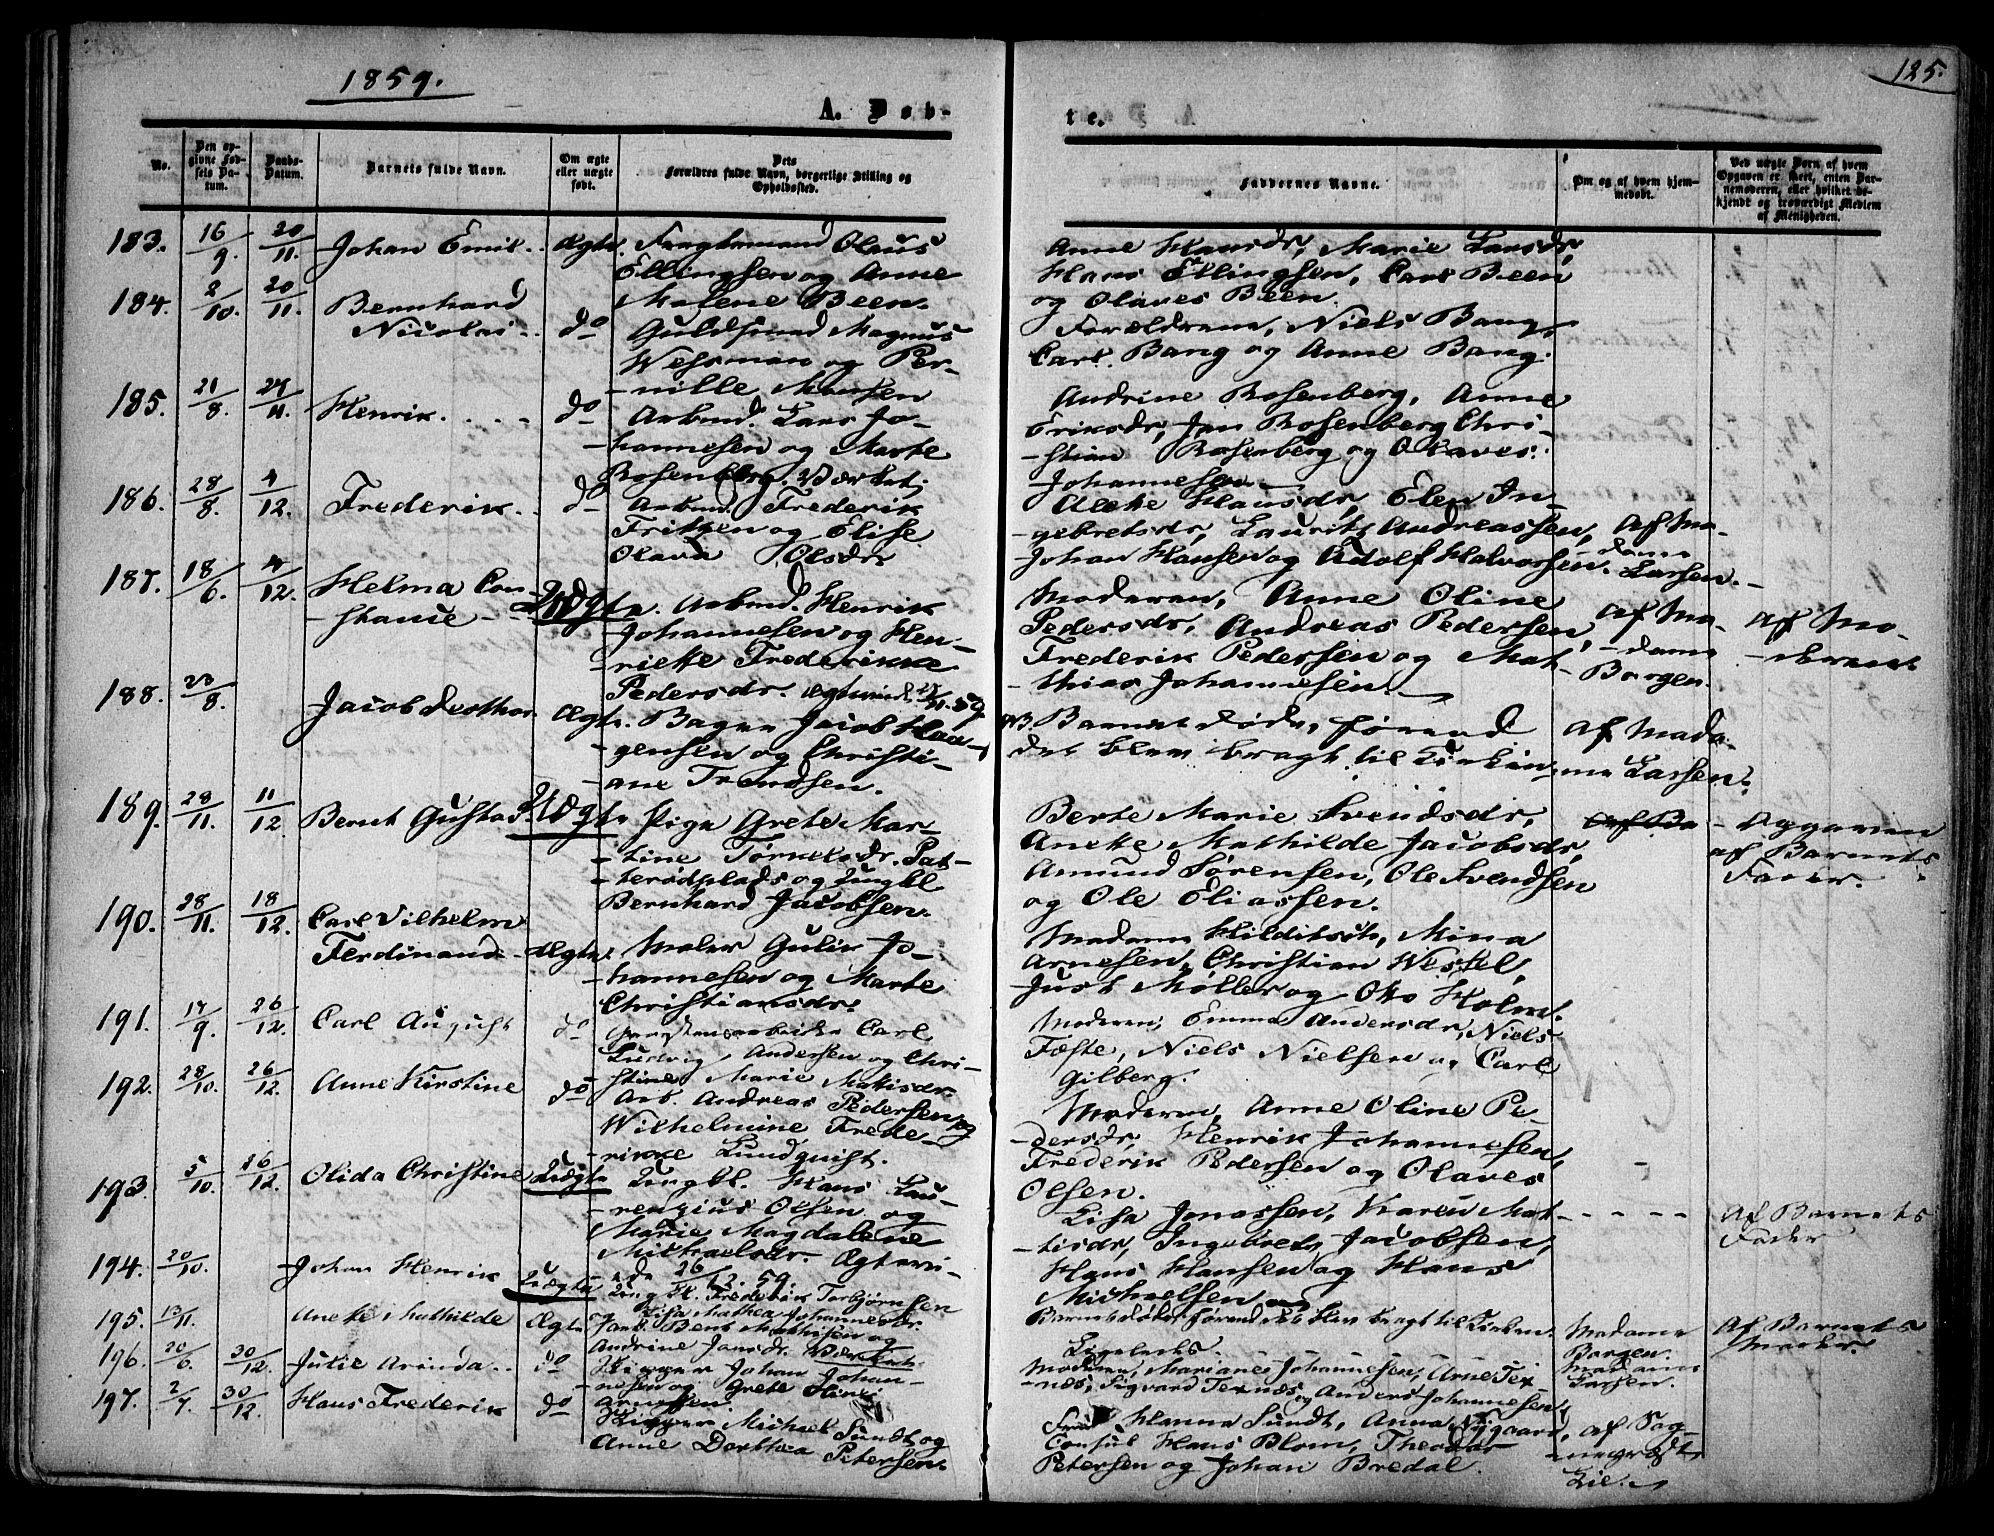 1859.
125.
A. Døb-
te.
No.
Den opgivne Fødsels Datum.
Daabs-Datum.
Barnets fulde Navn.
Om ægte eller uægte født.
Dets Forældres fulde Navn, borgerlige Stilling og Opholdssted.
Faddernes Navne.
Om og af hvem hjemmedøbt.
Ved uægte Børn af hvem Opgaven er skeet, enten Barnemoderen, eller hvilket bekjendt og troværdigt Medlem af Menigheden.
183. 16/9. 20/11. Johan Emil. Ægte. Fragtemand Olaus
Ellingsen og Anne
Malene Been.
Anne Hansdr, Marie Larsdr,
Hans Ellingsen, Carl Been
og Olaves Been.
184. 2/10. 20/11. Bernhard
Nicolai do Guldsmed Magnus
Wessman og Per-
nille Monsen
Forældrene, Niels Bang,
Carl Bang og Anne Bang.
185. 21/8. 24/11. Henrik. do Arbmd. Lars Jo-
hannesen og Marte
Rosenberg. Værket;
Andrine Rosenberg, Anne
Eriksdr, Jan Rosenberg Chri-
stian Rosenberg og Olaves
Johannesen
186. 28/8. 4/12. Frederik. do Arbmd. Frederik
Fritzen og Elise
Olava Olsdr
Aleke Hansdr, Elen In-
gebretsdr, Laurits Andreassen,
Johan Hansen og Adolf Halvorsen.
af Ma-
dame
Larsen.
187. 18/6. 4/12. Helma Con-
stance Uægte. Arbmd. Henrik
Johannesen og Hen-
rieke Frederikke
Pedersdr.
Moderen, Anne Oline
Pedersdr, Andreas Pedersen,
Frederik Pedersen og Mat-
thias Johannesen.
af Ma-
dame
Borgen.
af Mo-
deren
188. 23/8. Jacob Ægte. Bager Jacob Haa-
gensen og Christi-
ane Trondsen.
NB Barnet døde, førend
det blev bragt til Kirken
af Mada-
me Larsen.
189. 28/11. 11/12 Bernt Gustav. Uægte Pige Grete Mar-
tine Tørkelsdr. Pat-
terødplads og Ungkl
Bernhard Jacobsen.
Berte Marie Svendsdr,
Aneke Mathilde Jacobsdr,
Amund Sørensen, Ole Svendsen
og Ole Eliassen.
Opgaven
af Barnets
Fader.
190. 28/11. 18/12. Carl Vilhelm
Ferdinand Ægte. Maler Gulik Jo-
hannesen og Marte
Christiansdr.
Madame Hilditsch, Mina
Arnesen, Christian Wessel,
Just Møller og Otto Holm.
191. 17/9. 26/12. Carl August do Carl
Ludvig Andersen og Chri-
stine Marie Matisdr.
Moderen, Emma Andersdr, Niels
Fæste, Niels Nielsen og Carl
Gilberg.
192. 28/10. 26/12. Anne Kirstine do Arb. Andreas Pedersen og
Wilhelmine Frede-
rikke Lundquist.
Moderen, Anne Oline Pe-
dersdr, Henrik Johannesen,
Frederik Pedersen og Olaves
Olsen.
193. 5/10. 26/12. Olida Christine Uægte Ungkl. Hans Lau-
rengius Olsen og
Marie Magdalene
Michaelsdr. Ægtevi-
ede 26/12. 59.
Lisa Jonassen, Karen Mat-
tisdr, Ingebret Jacobsen,
Hans Hansen og Hans
Michaelsen
Af Barnets
Fader
194. 20/10. Johan Henrik Uægte Ung Kl. Frederik Torbjørnsen
Lisa Mathea Johannesdr.
Barnet døde førend det blev bragt til Kirken.
Madame
Borgen.
Af Barnets
Moder.
195. 13/11. Aneke Mathilde Ægte Arb. Bent Mathisen og
Andrine Jansdr. Værket
Ligeledes.
Madame
Larsen.
196. 20/6. 30/12. Julie Arinda do Skipper Johan Johan-
nesen og Grete
Arnesen.
Moderen, Mariane Johannesen, Arne Tex-
næs, Sigvard Texnæs og Anders Johannesen
197. 2/7. 30/12. Hans Frederik do Skipper Michael Sundt og
Anne Dorthea Petersen.
Hanna Sundt, Anna Nygaard,
Consul Hans Blom, Theodor
Petersen og Johan Bredal.
af Sog-
nepræst
Lie.